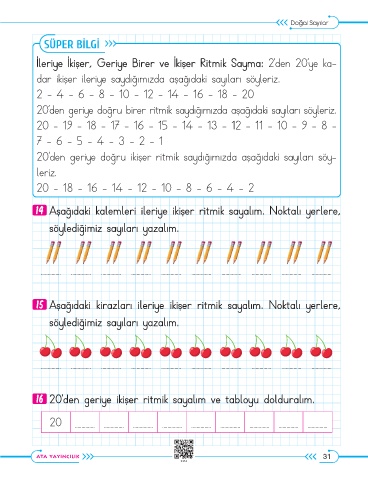 Doğal Sayılar
SÜPER BİLGİ
İleriye İkişer, Geriye Birer ve İkişer Ritmik Sayma: 2'den 20'ye ka-
dar ikişer ileriye saydığımızda aşağıdaki sayıları söyleriz.
2 - 4 - 6 - 8 - 10 - 12 - 14 - 16 - 18 - 20
20'den geriye doğru birer ritmik saydığımızda aşağıdaki sayıları söyleriz.
20 - 19 - 18 - 17 - 16 - 15 - 14 - 13 - 12 - 11 - 10 - 9 - 8 -
7 - 6 - 5 - 4 - 3 - 2 - 1
20'den geriye doğru ikişer ritmik saydığımızda aşağıdaki sayıları söy-
leriz.
20 - 18 - 16 - 14 - 12 - 10 - 8 - 6 - 4 - 2
14 Aşağıdaki kalemleri ileriye ikişer ritmik sayalım. Noktalı yerlere,
söylediğimiz sayıları yazalım.
15 Aşağıdaki kirazları ileriye ikişer ritmik sayalım. Noktalı yerlere,
söylediğimiz sayıları yazalım.
16 20'den geriye ikişer ritmik sayalım ve tabloyu dolduralım.
20
ATA YAYINCILIK
31